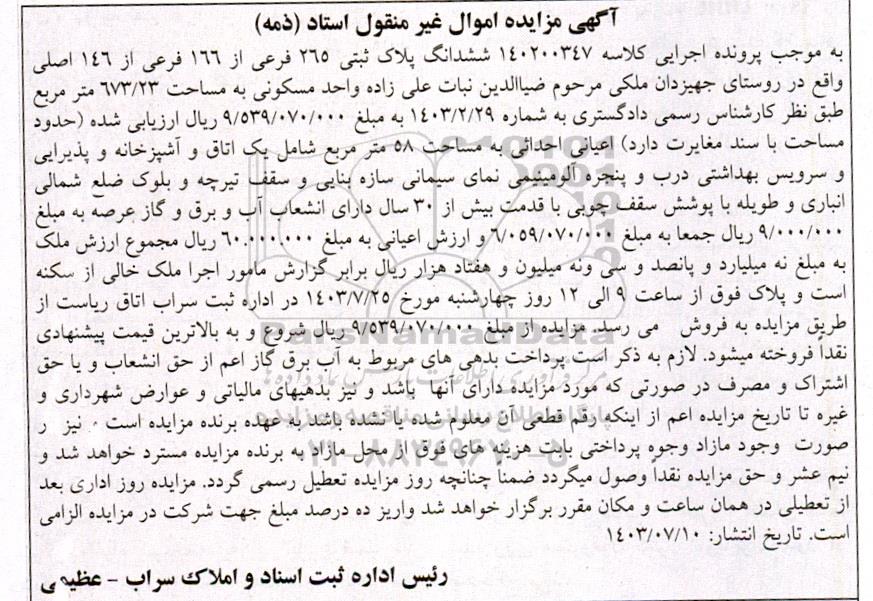 آگهی مزایده اموال غیر منقول اسناد (ذمه)
به موجب پرونده اجرایی کلاسه ۱۴۰۲۰۰۳۴۷ ششدانگ پلاک ثبتی ۲۶۵ فرعی از ۱۶۶ فرعی از ۱۴۶ اصلی
واقع در روستای جهیزدان ملکی مرحوم ضیاالدین نبات علی زاده واحد مسکونی به مساحت ۶۷۳/۲۳ متر مربع
طبق نظر کارشناس رسمی دادگستری به شماره ۱۴۰۳/۲/۲۹ به مبلغ ۹/۵۳۹/۰۷۰/۰۰۰ ریال ارزیابی شده (حدود
مساحت با سند مغایرت دارد) اعیانی احداثی به مساحت ۵۸ متر مربع شامل یک اتاق و آشپزخانه و پذیرایی
و سرویس بهداشتی درب و پنجره آلومینیمی نمای سیمانی سازه بنایی و سقف تیرچه و بلوک ضلع شمالی
انباری و طویله با پوشش سقف چوبی با قدمت بیش از ۳۰ سال دارای انشعاب آب و برق و گاز عرصه به مبلغ
۹/۰۰۰/۰۰۰ ریال جمعا به مبلغ ۶/۰۵۹/۰۷۰/۰۰۰ و ارزش اعیانی به مبلغ ۶۰.۰۰۰.۰۰۰ ریال مجموع ارزش ملک
به مبلغ نه میلیارد و پانصد و سی ونه میلیون و هفتاد هزار ریال برابر گزارش مامور اجرا ملک خالی از سکنه
است و پلاک فوق از ساعت ۹ الی ۱۲ روز چهارشنبه مورخ ۱۴۰۳/۷/۲۵ در اداره ثبت سراب اتاق ریاست از
طریق مزایده به فروش می رسد. مزایده از مبلغ ۹/۵۳۹/۰۷۰/۰۰۰ ریال شروع و به بالاترین قیمت پیشنهادی
نقداً فروخته میشود. لازم به ذکر است پرداخت بدهی های مربوط به آب برق گاز اعم از حق انشعاب و یا حق
اشتراک و مصرف در صورتی که مورد مزایده دارای آنها باشد و نیز بدهیهای مالیاتی و عوارض شهرداری و
غیره تا تاریخ مزایده اعم از اینکه رقم قطعی آن معلوم شده یا نشده باشد به عهده برنده مزایده است . نیز ر
صورت وجود مازاد وجوه پرداختی بابت هزینه های فوق از محل مازاد به برنده مزایده مسترد خواهد شد و
نیم عشر و حق مزایده نقداً وصول میگردد ضمناً چنانچه روز مزایده تعطیل رسمی گردد. مزایده روز اداری بعد
از تعطیلی در همان ساعت و مکان مقرر برگزار خواهد شد واریز ده درصد مبلغ جهت شرکت در مزایده الزامی
است. تاریخ انتشار: ۱۴۰۳/۰۷/۱۰
رئیس اداره ثبت اسناد و املاک سراب - عظیمی
ParsNamadData
پایگاه اطلاع رسانی مناقصه و مزایده
۰۲۱-۸۸۳۴۹۶۷۰-۵